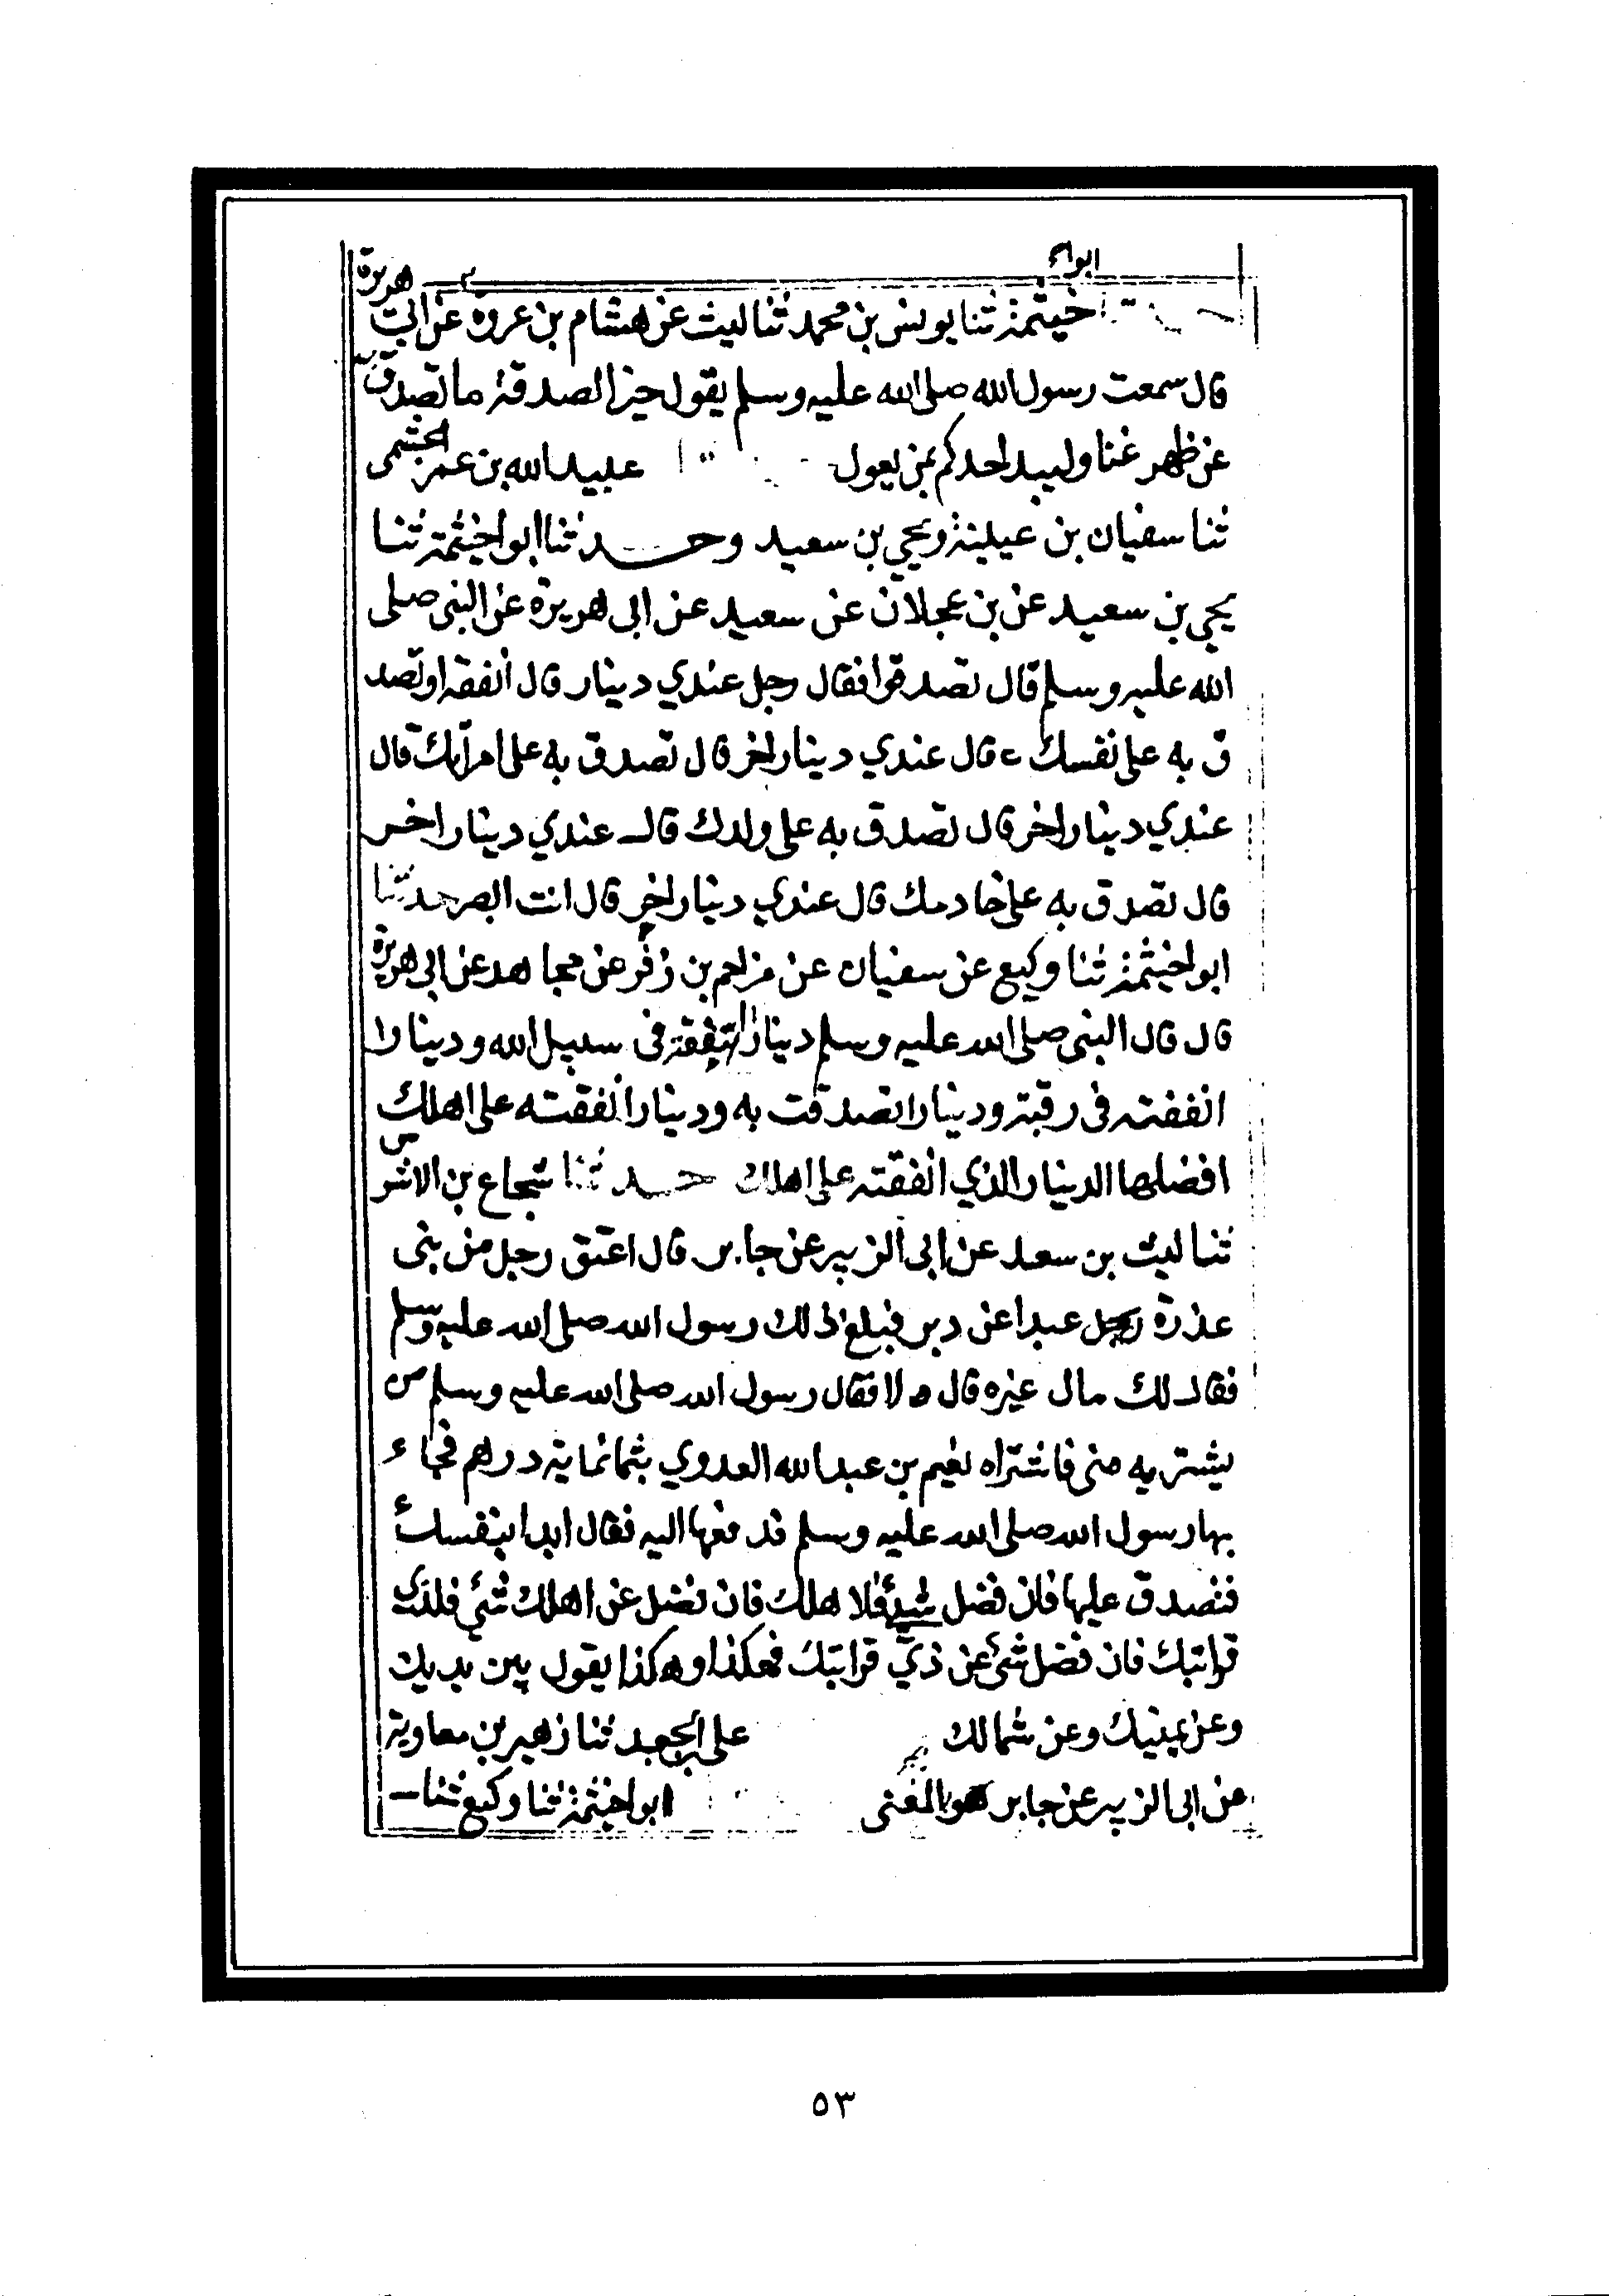 ابو
هريرة
خيثمة ثنا يونس بن محمد ثنا ليث عن هشام بن عروة عن ابي
قال سمعت رسول الله صلى الله عليه وسلم يقول خير الصدقة ما تصدق
عن ظهر غنا وليبد احدكم بمن يعول عبيد الله بن عمر الجشمي
ثنا سفيان بن عيينة ويحي بن سعيد وحدثنا ابو خيثمة ثنا
يحي بن سعيد عن بن عجلان عن سعيد عن ابى هريرة عن النبى صلى
الله عليه وسلم قال تصدقوا فقال رجل عندي دينار قال انفقه او تصد
ق به على نفسك قال عندي دينار اخر قال تصدق به على امرأتك قال
عندي دينار اخر قال تصدق به على ولدك قال عندي دينار اخر
قال تصدق به على خادمك قال عندي دينار اخر قال انت ابصر حدثنا
ابو اخيثمة ثنا وكيع عن سفيان عن مزاحم بن زفر عن مجاهد عن ابى هريرة
قال قال النبى صلى الله عليه وسلم دينارا انفقته فى سبيل الله ودينارا
انفقته فى رقبة ودينارا تصدقت به ودينارا انفقته على اهلك
افضلها الدينار الذي انفقته على اهلك حدثنا شجاع بن الاشرس
ثنا ليث بن سعد عن ابى الزبير عن جابر قال اعتق رجل من بنى
عذرة رجل عبدا عن دبر فبلغ ذلك رسول الله صلى الله عليه وسلم
فقال لك مال غيره قال لا فقال رسول الله صلى الله عليه وسلم من
يشتريه منى فاشتراه نعيم بن عبد الله العدوي بثمانماية درهم فجاء
بها رسول الله صلى الله عليه وسلم فدفعها اليه فقال ابدا بنفسك
فتصدق عليها فان فضل شيء فلاهلك فان فضل عن اهلك شئ فلذى
قرابتك فان فضل شئ عن ذي قرابتك فهكذا وهكذا يقول بين يديك
وعن يمينك وعن شمالك على بن الجعد ثنا زهير بن معاوية
عن ابى الزبير عن جابر نحو المعنى ابو اخيثمة ثنا وكيع ثنا
٥٣